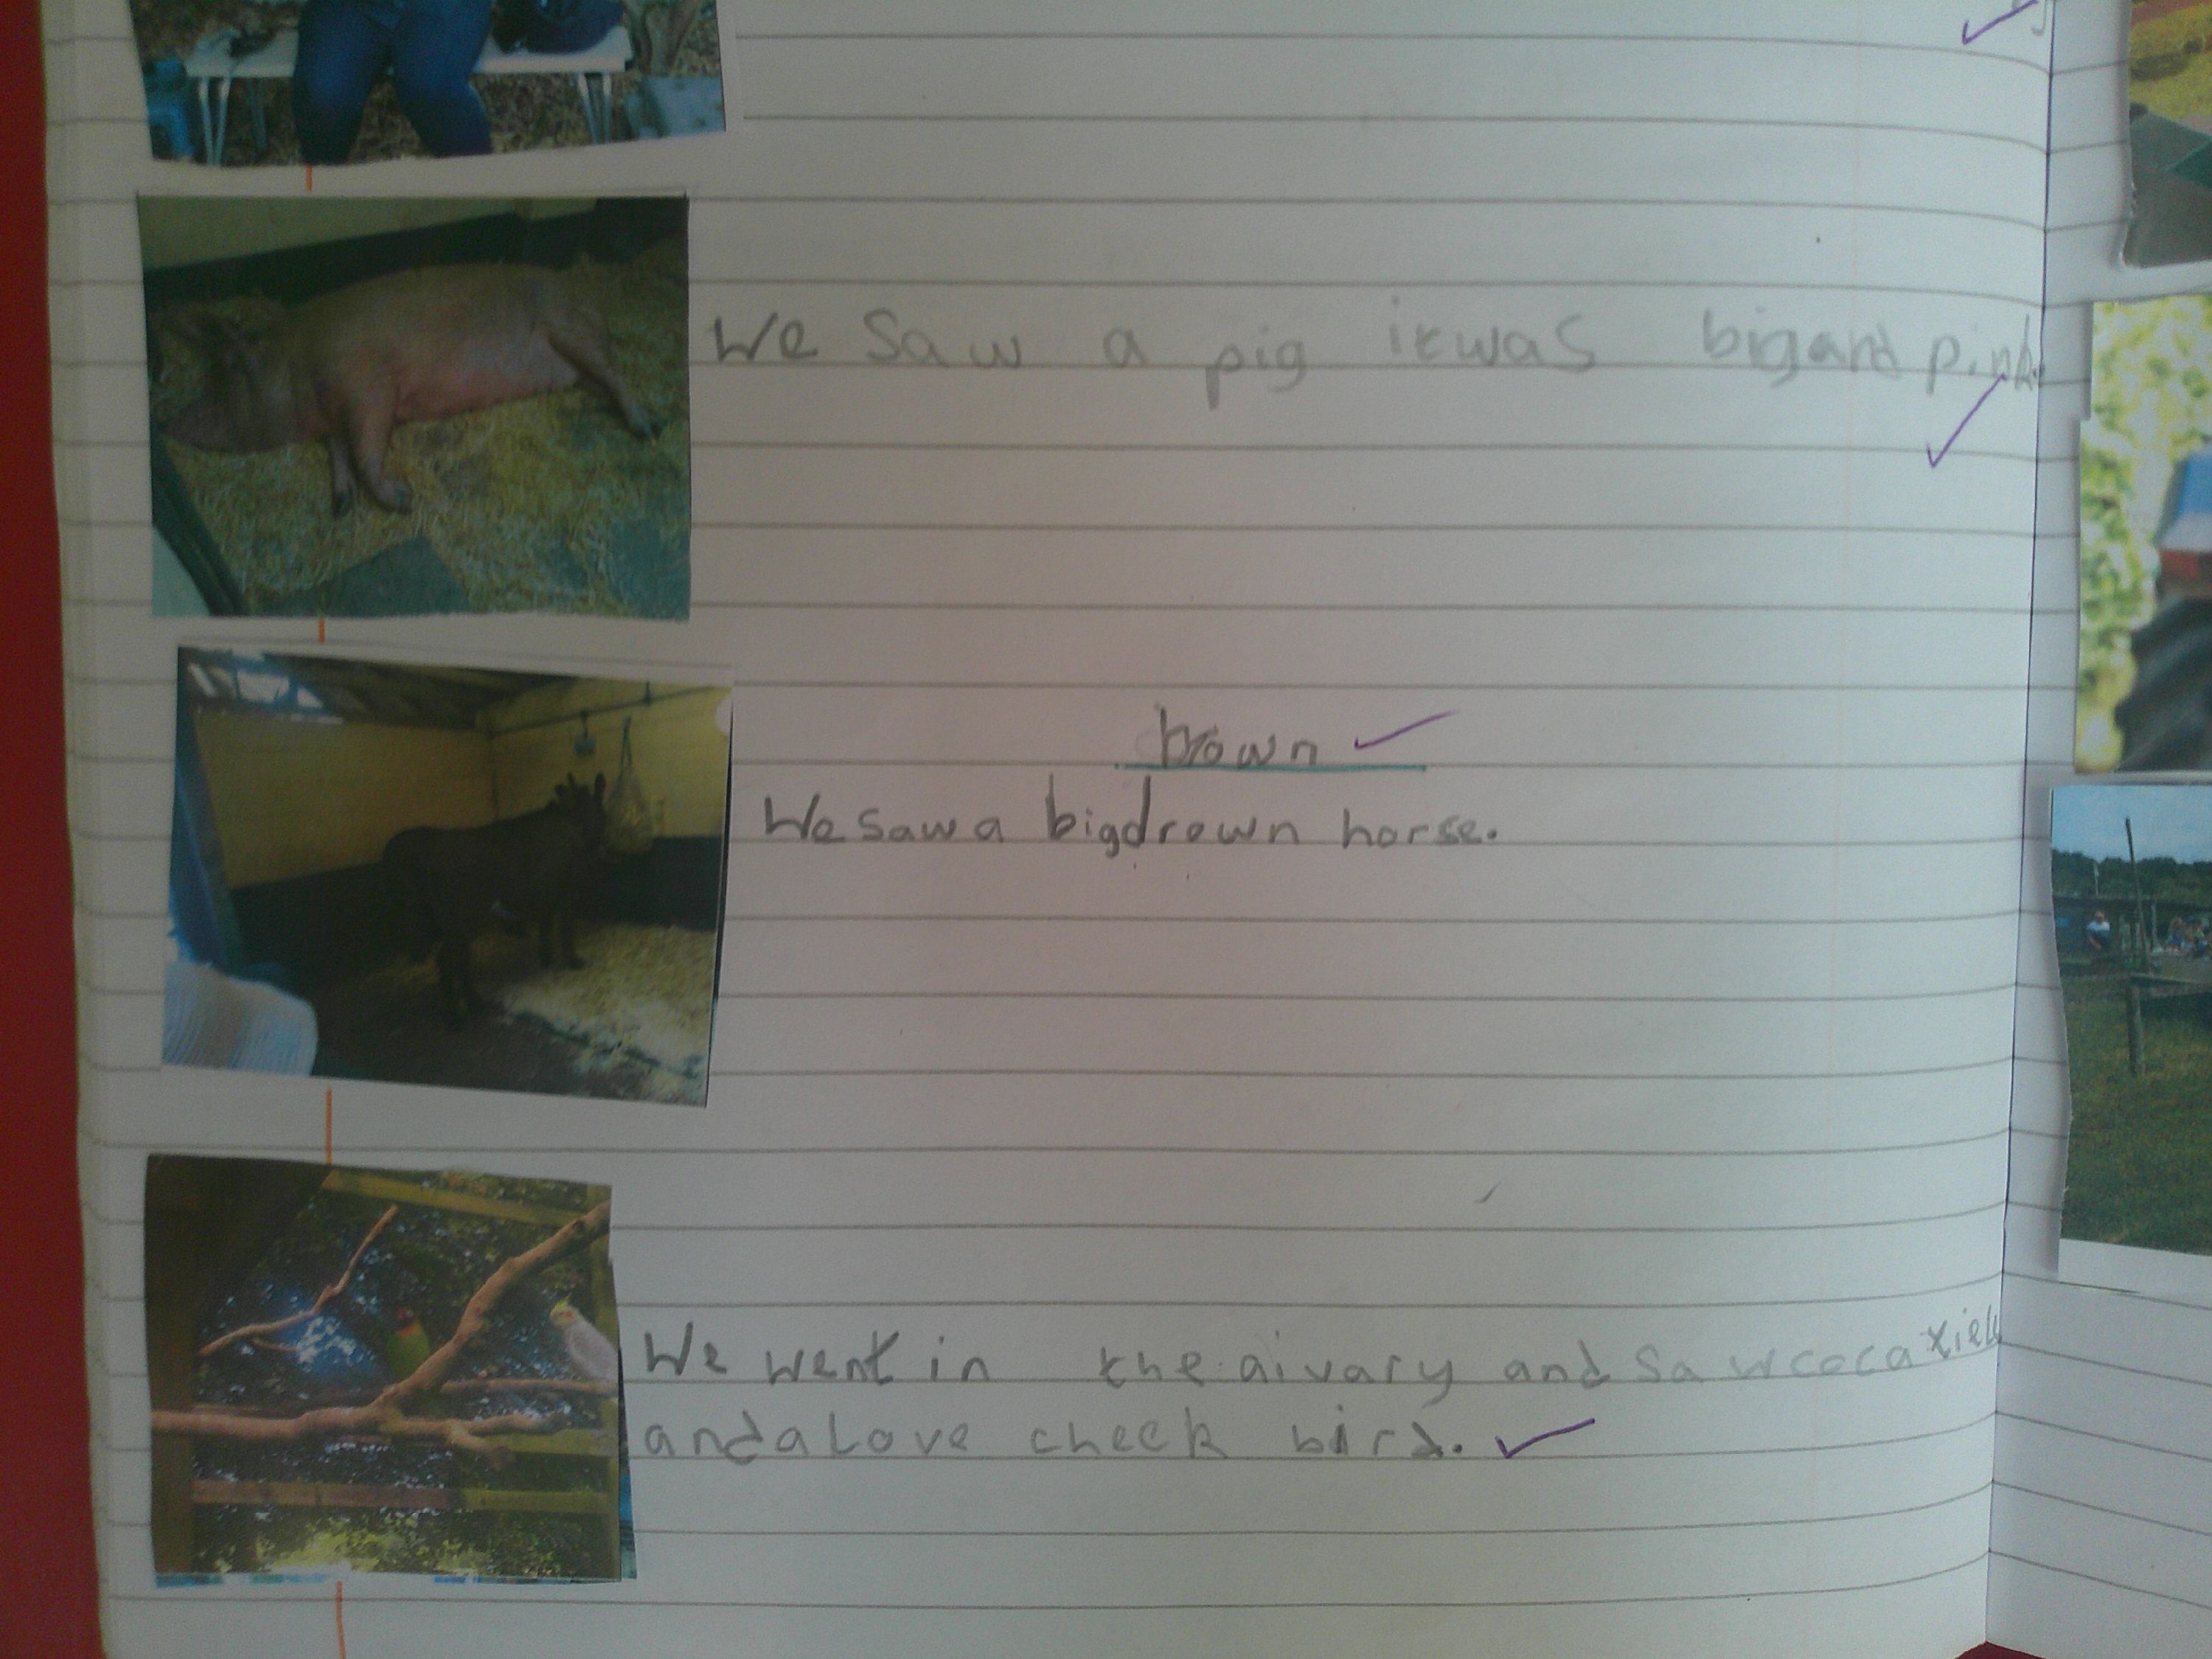 We saw a pig it was big and pink.
brown
We saw a big drown horse.
We went in the aivary and saw cocatiel
and a Love cheek bird.